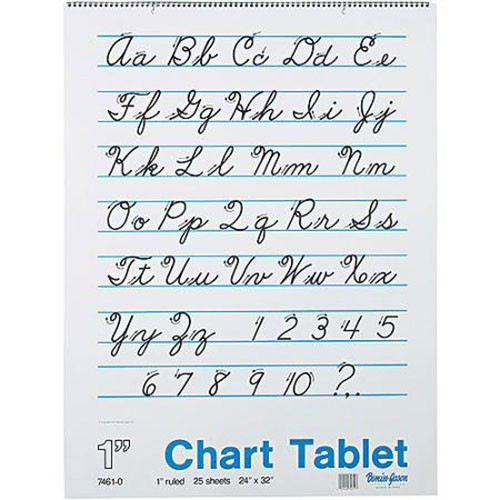 Aa Bb Cc Dd Ee
Ff Gg Hh Ii Jj
Kk Ll Mm Nn
Oo Pp Qq Rr Ss
Tt Uu Vv Ww Xx
Yy Zz 1 2 3 4 5
6 7 8 9 10 ?,.
1” Chart Tablet
7461-0 1" ruled 25 sheets 24" x 32" Bemiss-Jason